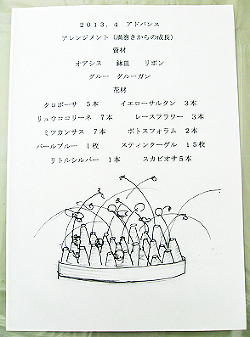 2013.4 アドバンス
アレンジメント (渦巻きからの成長)
資材
オアシス 鉢皿 リボン
グルー グルーガン
花材
タロボーサ 5本 イエローサルタン 3本
リュウココリーネ 7本 レースフラワー 3本
ミツカンサス 7本 ポトスフォラム 2本
パールブルー 1枚 スティンターグル 15枚
リトルシルバー 1本 スカビオサ5本